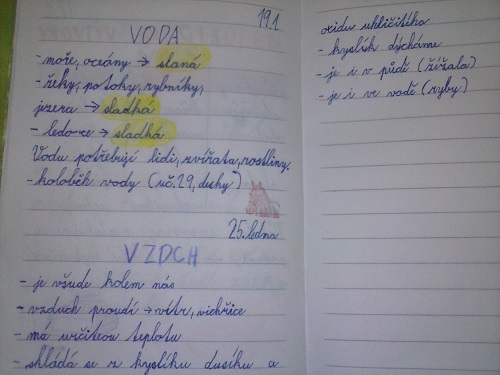 19.1.
VODA
- moře, oceány → slaná
- řeky, potoky, rybníky,
jezera → sladká
- ledovce → sladká
Vodu potřebují lidi, zvířata, rostliny.
- koloběh vody (uč. 29, desky)
25. ledna
VZDCH
- je všude kolem nás
- vzduch proudí → vítr, vichřice
- má určitou teplotu
- skládá se z kyslíku dusíku a
oxidu uhličitého
- kyslík dýcháme
- je i v půdě (žížala)
- je i ve vodě (ryby)